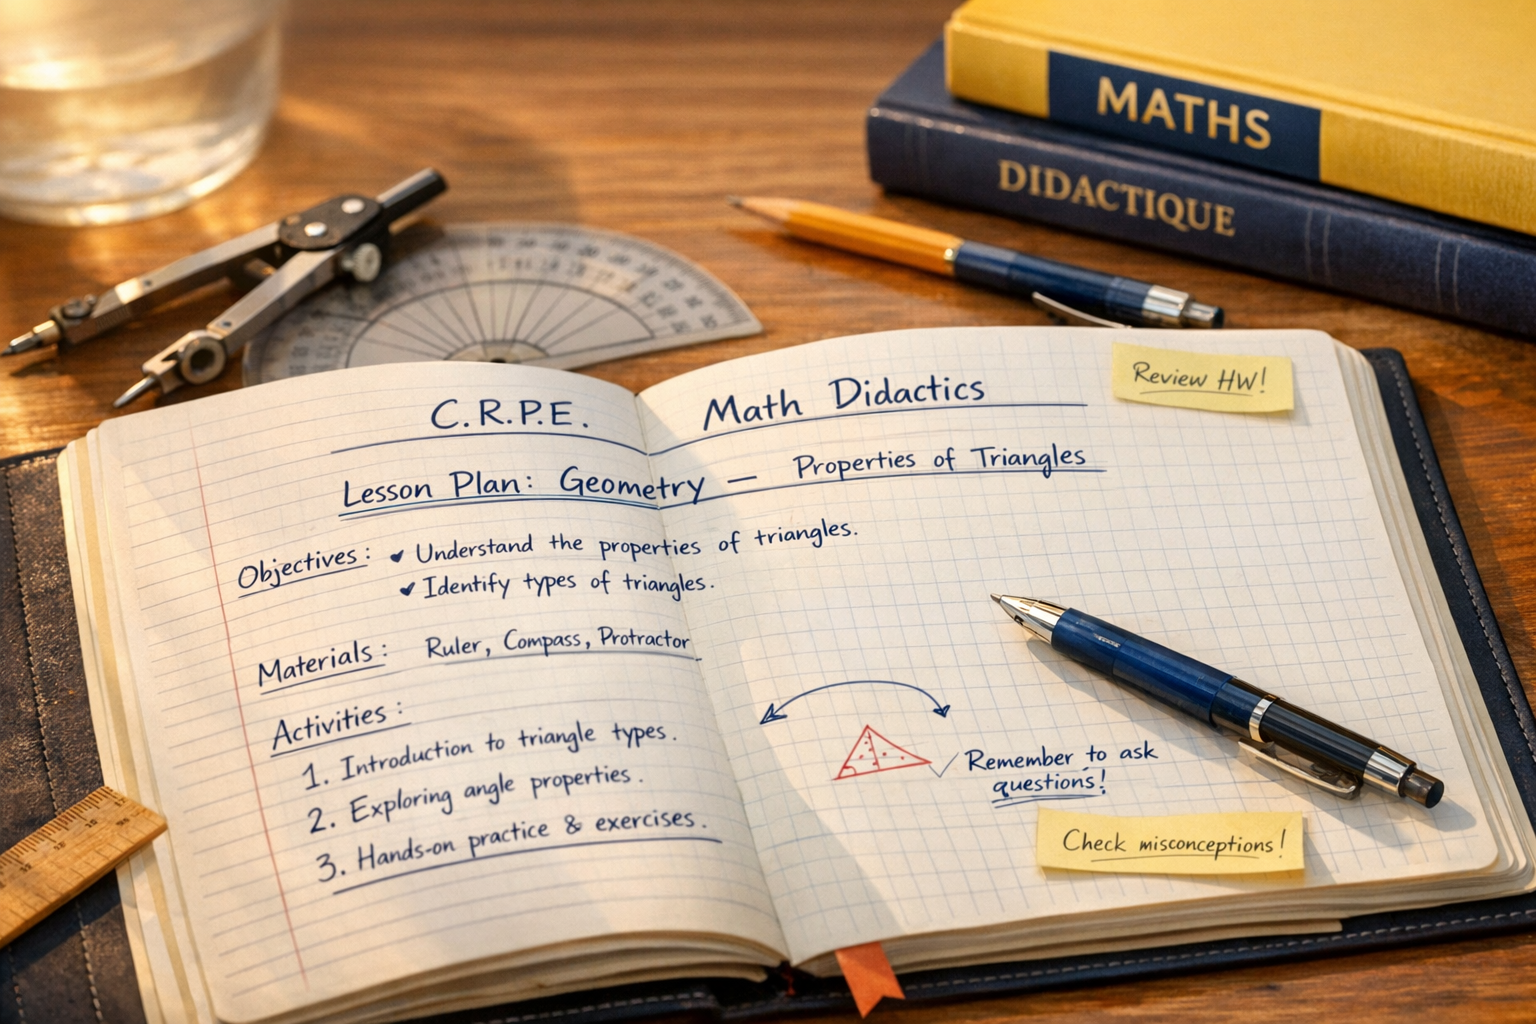 MATHS
DIDACTIQUE
C.R.P.E. Math Didactics
Review HW!
Lesson Plan: Geometry — Properties of Triangles
Objectives: ✔ Understand the properties of triangles.
✔ Identify types of triangles.
Materials: Ruler, Compass, Protractor
Activities:
1. Introduction to triangle types.
2. Exploring angle properties.
3. Hands-on practice & exercises.
Remember to ask
questions!
Check misconceptions!